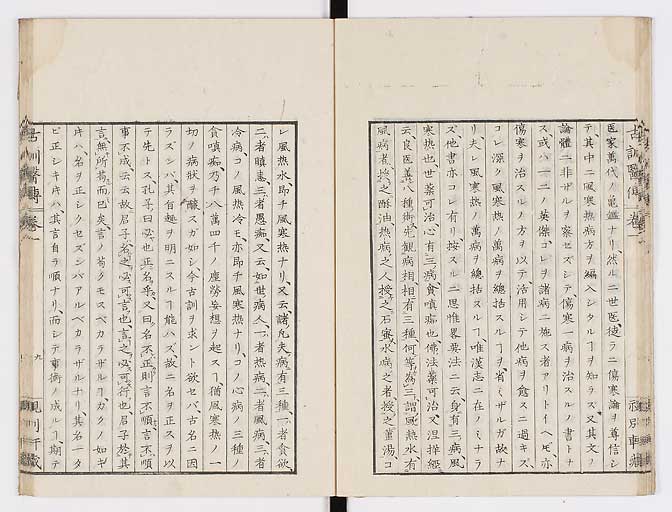 医家萬代ノ亀鑑ナリ然ルニ世医徒ラニ傷寒論ヲ尊信シ
テ其中ニ風寒熱病方ヲ編入シタルヿヲ知ラズ又其文ノ
論體ニ非ザルヲ察セズシテ傷寒一病ヲ治スルノ書トナ
ス或ハ一二ノ英傑コレヲ諸病ニ施ス者アリトイヘ𪜈亦
傷寒ヲ治スルノ方ヲ以テ活用シテ他病ヲ愈スニ過キズ
コレ深ク風寒熱ノ萬病ヲ總括スルヿヲ省ミザルガ故ナ
リ夫レ風寒熱ノ萬病ヲ總括スルヿ唯漢志ニ在ノミナラ
ズ他書亦コレ有リ按スルニ思惟畧要法ニ云身有三病風
寒熱也世薬可治心有三病貪嗔癡也佛法薬可治又涅槃經
云良医善八種術先観病相相有三種何等為三謂風熱水有
風病者授之酥油熱病之人授之石蜜水病之者授之薑湯コ
レ風熱水即チ風寒熱ナリ又云諸凡夫病有三種一者貪欲
二者瞋恚三者愚癡又云如世病人一者熱病二者風病三者
冷病コノ風熱冷モ亦即チ風寒熱ナリコノ心病ノ三種ノ
貪嗔癡乃チ八萬四千ノ塵勞妄想ヲ起スヿ猶風寒熱ノ一
切ノ病狀ヲ醸スカ如シ今古訓ヲ求ント欲セバ古名ニ因
ラズンバ其自起ヲ明ニスルヿ能ハズ故ニ名ヲ正スヲ以
テ先トス孔子曰必也正名乎又曰名不正則言不順言不順
事不成云云故君子名之必可言也言之必可行也君子於其
言無所苟而已矣言ノ苟クモスベカラザルヿカクノ如キ
トキハ名ヲ正シクセズンバアルベカラザルナリ其名一タ
ビ正シキトキハ其言自ラ順ナリ而シテ事術ノ成ルヿ期テ
古訓醫傳 卷一
九